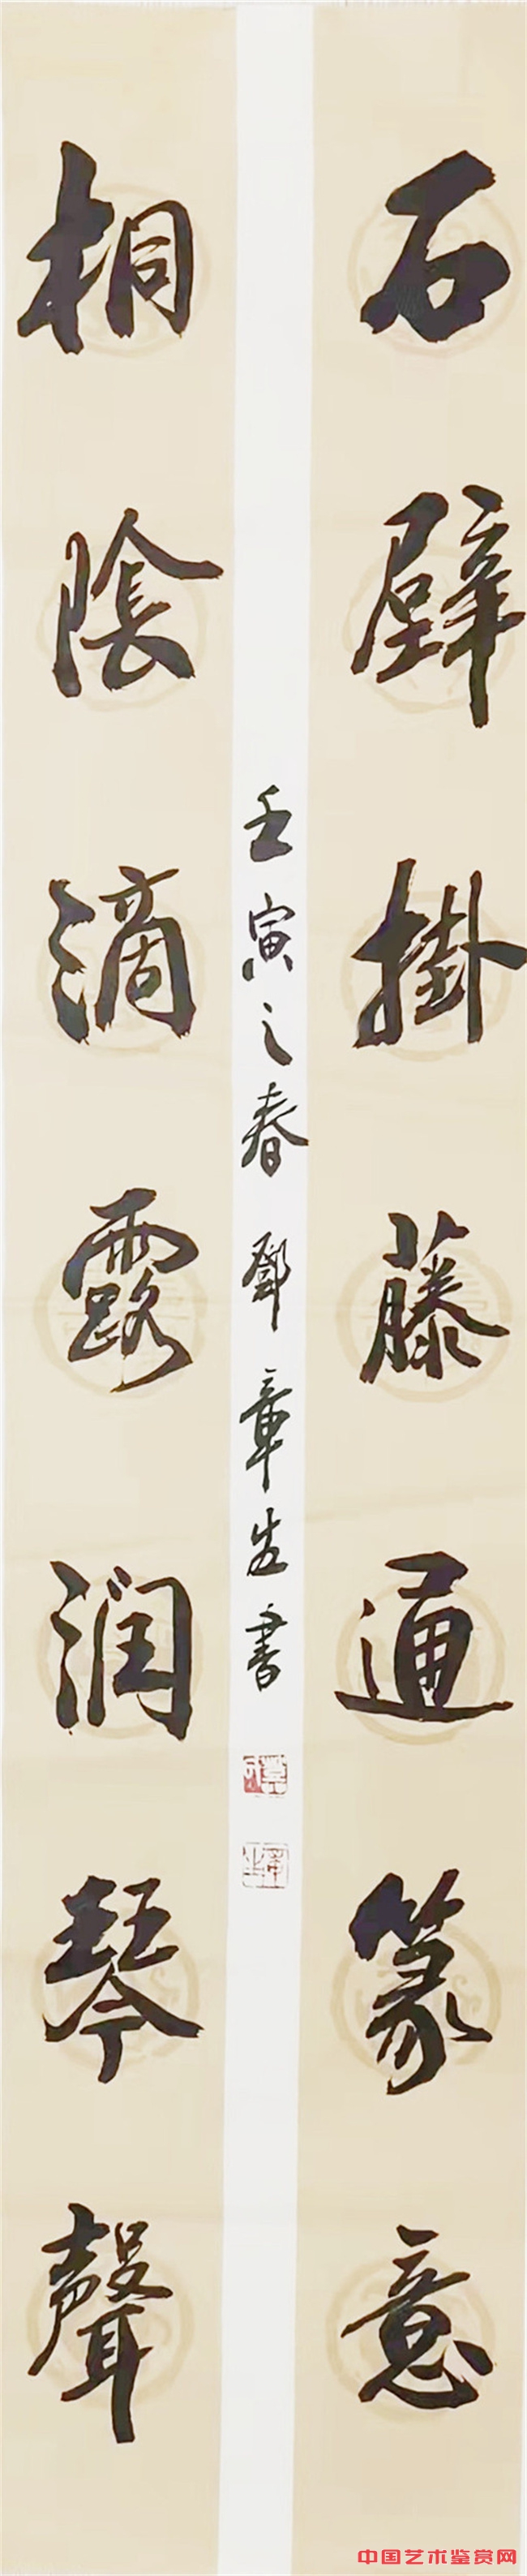 石壁掛藤通篆意
桐陰滴露润琴聲
壬寅之春 鄧章生書
中国艺术鉴赏网